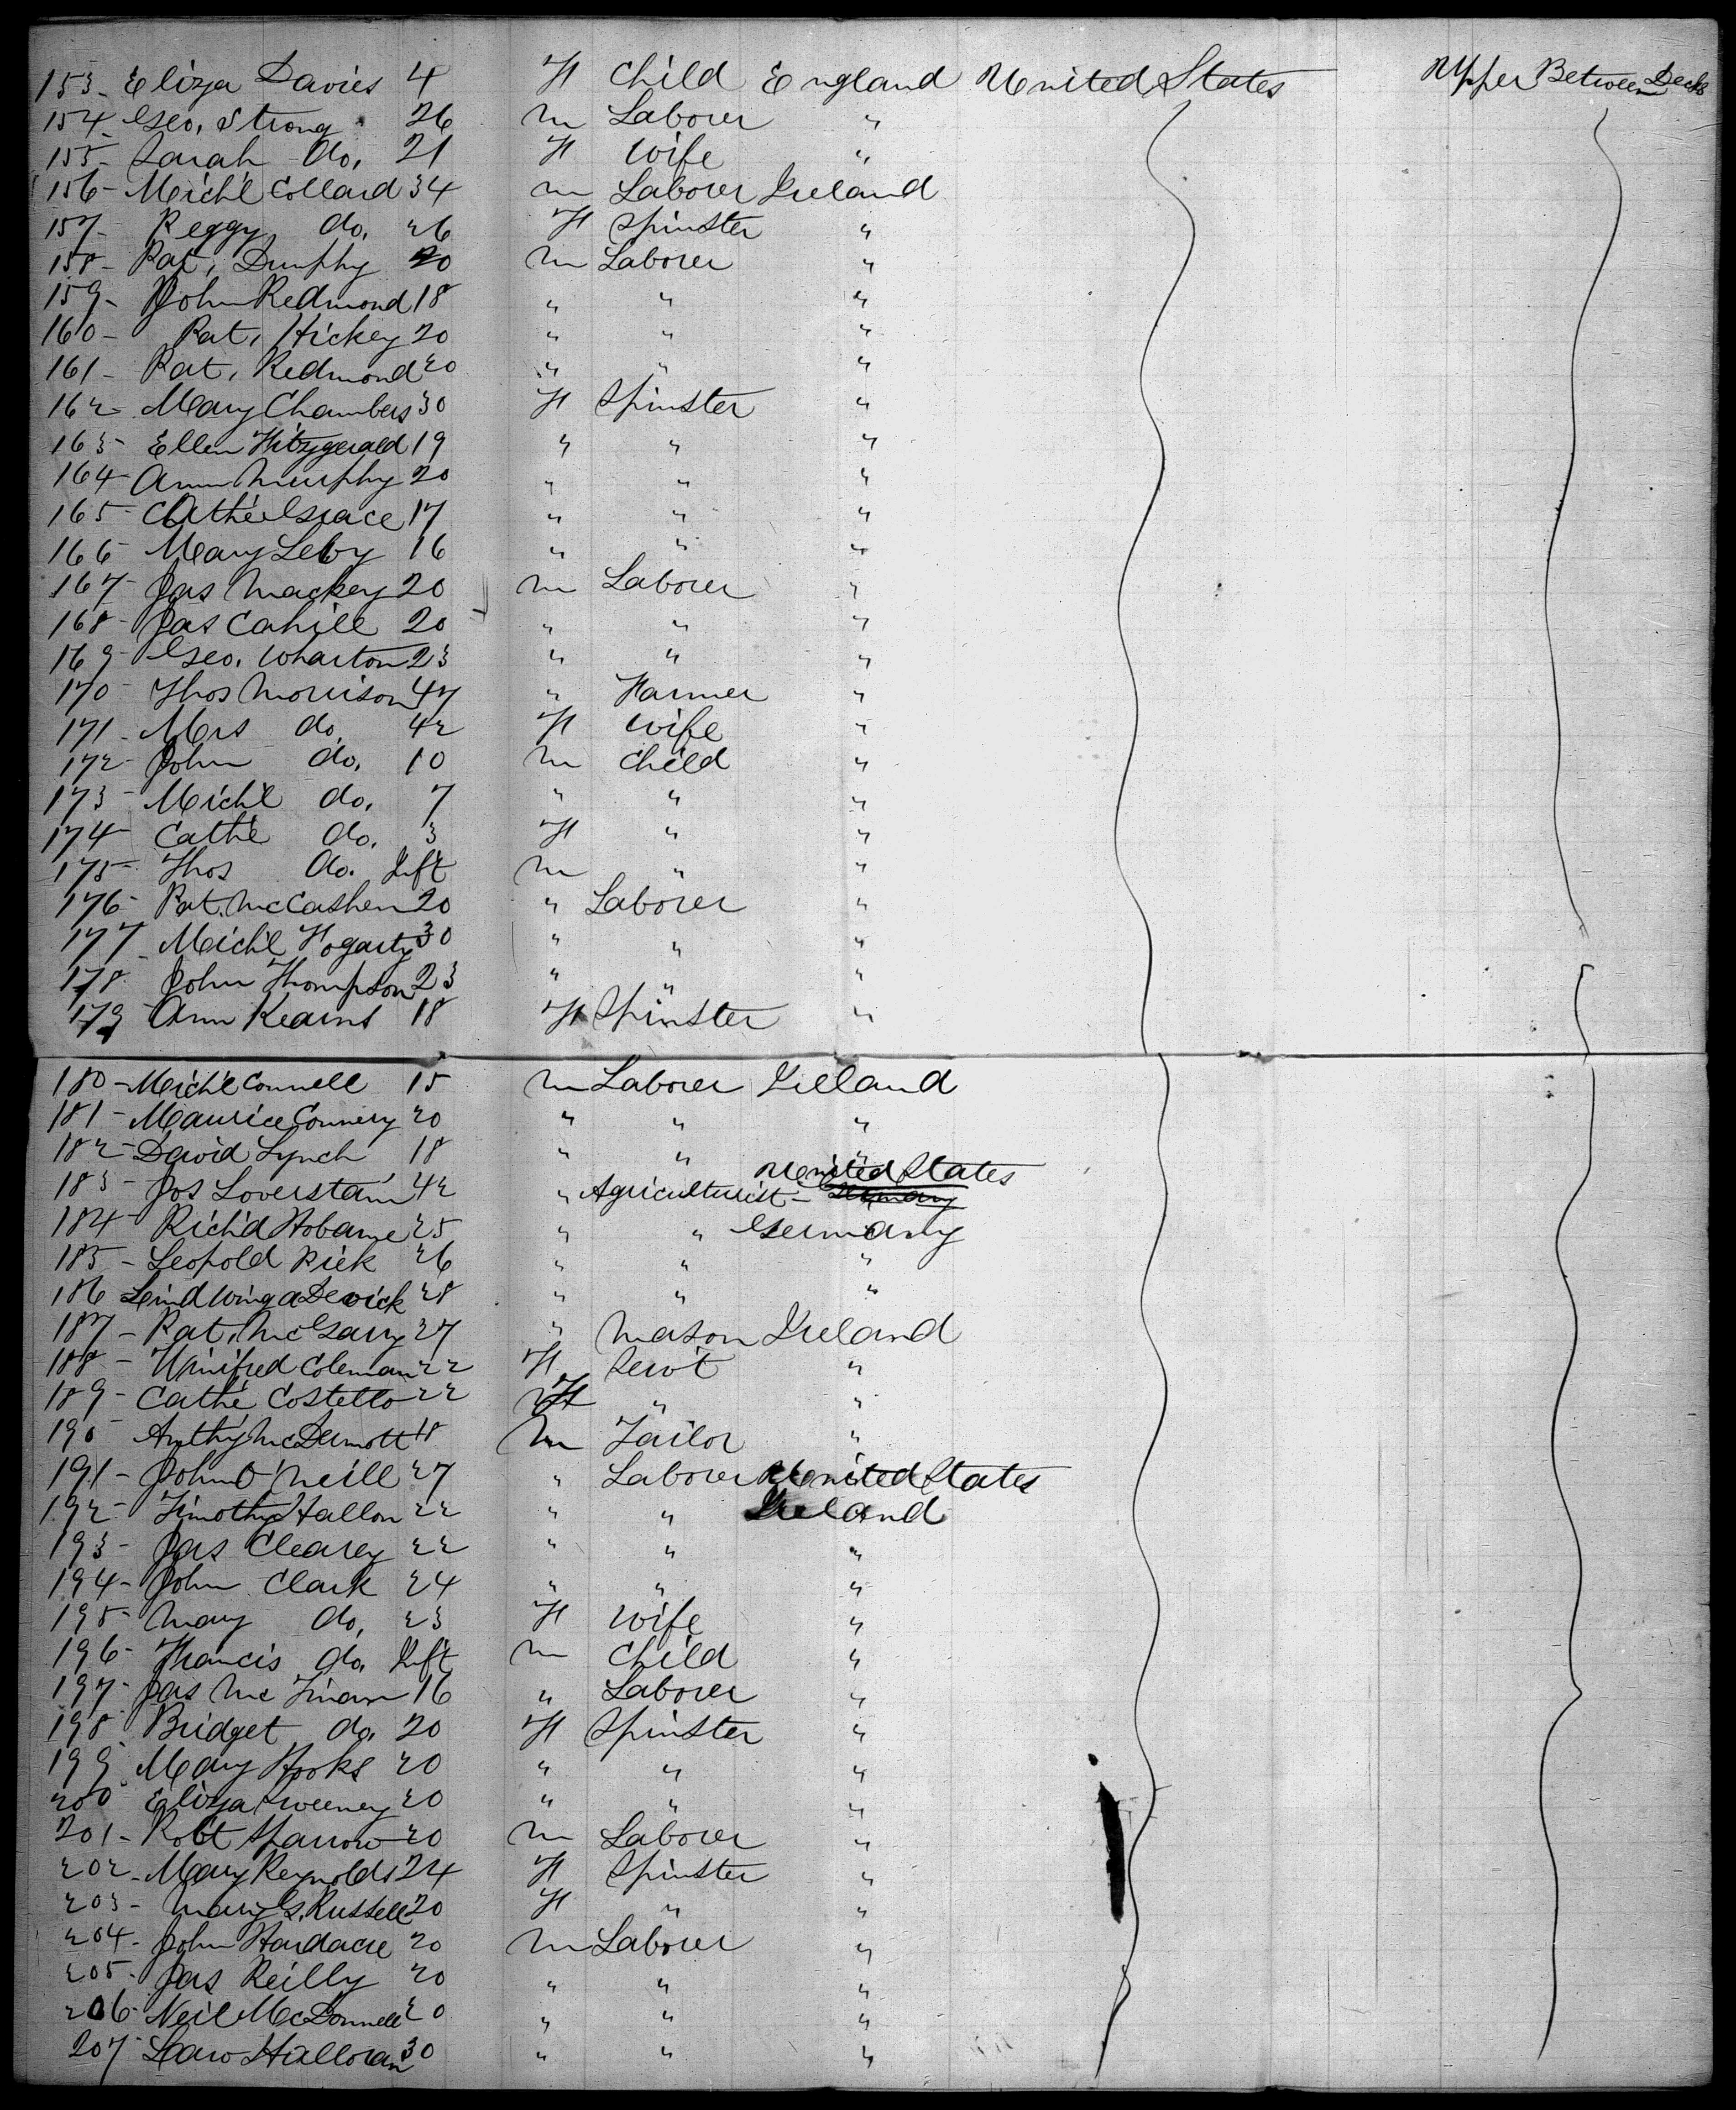 153- Eliza Davies 4 F Child England United States Upper Between Decks
154- Geo. Strong 26 M Laborer "
155- Sarah do. 21 F Wife "
156- Mich'l Collard 34 M Laborer Ireland
157- Peggy do. 26 F Spinster "
158- Pat. Dunphy 20 M Laborer "
159- John Redmond 18 " " "
160- Pat. Hickey 20 " " "
161- Pat. Redmond 20 " " "
162- Mary Chambers 30 F Spinster "
163- Ellen Fitzgerald 19 " " "
164- Ann Murphy 20 " " "
165- Cathe Grace 17 " " "
166- Mary 16 " " "
167- Jas Mackey 20 M Laborer "
168- Jas Cahill 20 " " "
169- Geo. Wharton 23 " " "
170- Thos Morrison 47 " Farmer "
171- Mrs do. 42 F Wife "
172- John do. 10 M Child "
173- Mich'l do. 7 " " "
174- Cathe do. 3 F " "
175- Thos do. Inft M " "
176- Pat. McCashen 20 " Laborer "
177- Mich'l Fogarty 30 " " "
178- John Thompson 23 " " "
179 Ann Kearns 18 F Spinster "
180- Mich'l Connell 15 M Laborer Ireland
181- Maurice Connery 20 " " "
182- David Lynch 18 " " "
183- Jos Loverstain 42 " Agriculturist- United States Germany
184- Rich'd 25 " " Germany
185- Leopold Pick 26 " " "
186 28 " " "
187- Pat. McGarry 27 " Mason Ireland
188- Winifred Coleman 22 F Servt "
189- Cathe Costello 22 F " "
190- Anth'y McDermott 18 M Tailor "
191- John O'Neill 27 " Laborer United States
192- Timothy Hallon 22 " " Ireland
193- Jas Cleary 22 " " "
194- John Clark 24 " " "
195- Mary do. 23 F Wife "
196- Francis do. Inft M Child "
197- Jas McFinan 16 " Laborer "
198 Bridget do. 20 F Spinster "
199 Mary Hooks 20 " " "
200 Eliza Sweeney 20 " " "
201- Robt Sparrow 20 M Laborer "
202- Mary Reynolds 24 F Spinster "
203- Mary G. Russell 20 F " "
204- John Hardacre 20 M Laborer "
205- Jas Reilly 20 " " "
206- Neil McDonnell 20 " " "
207- Law Halloran 30 " " "